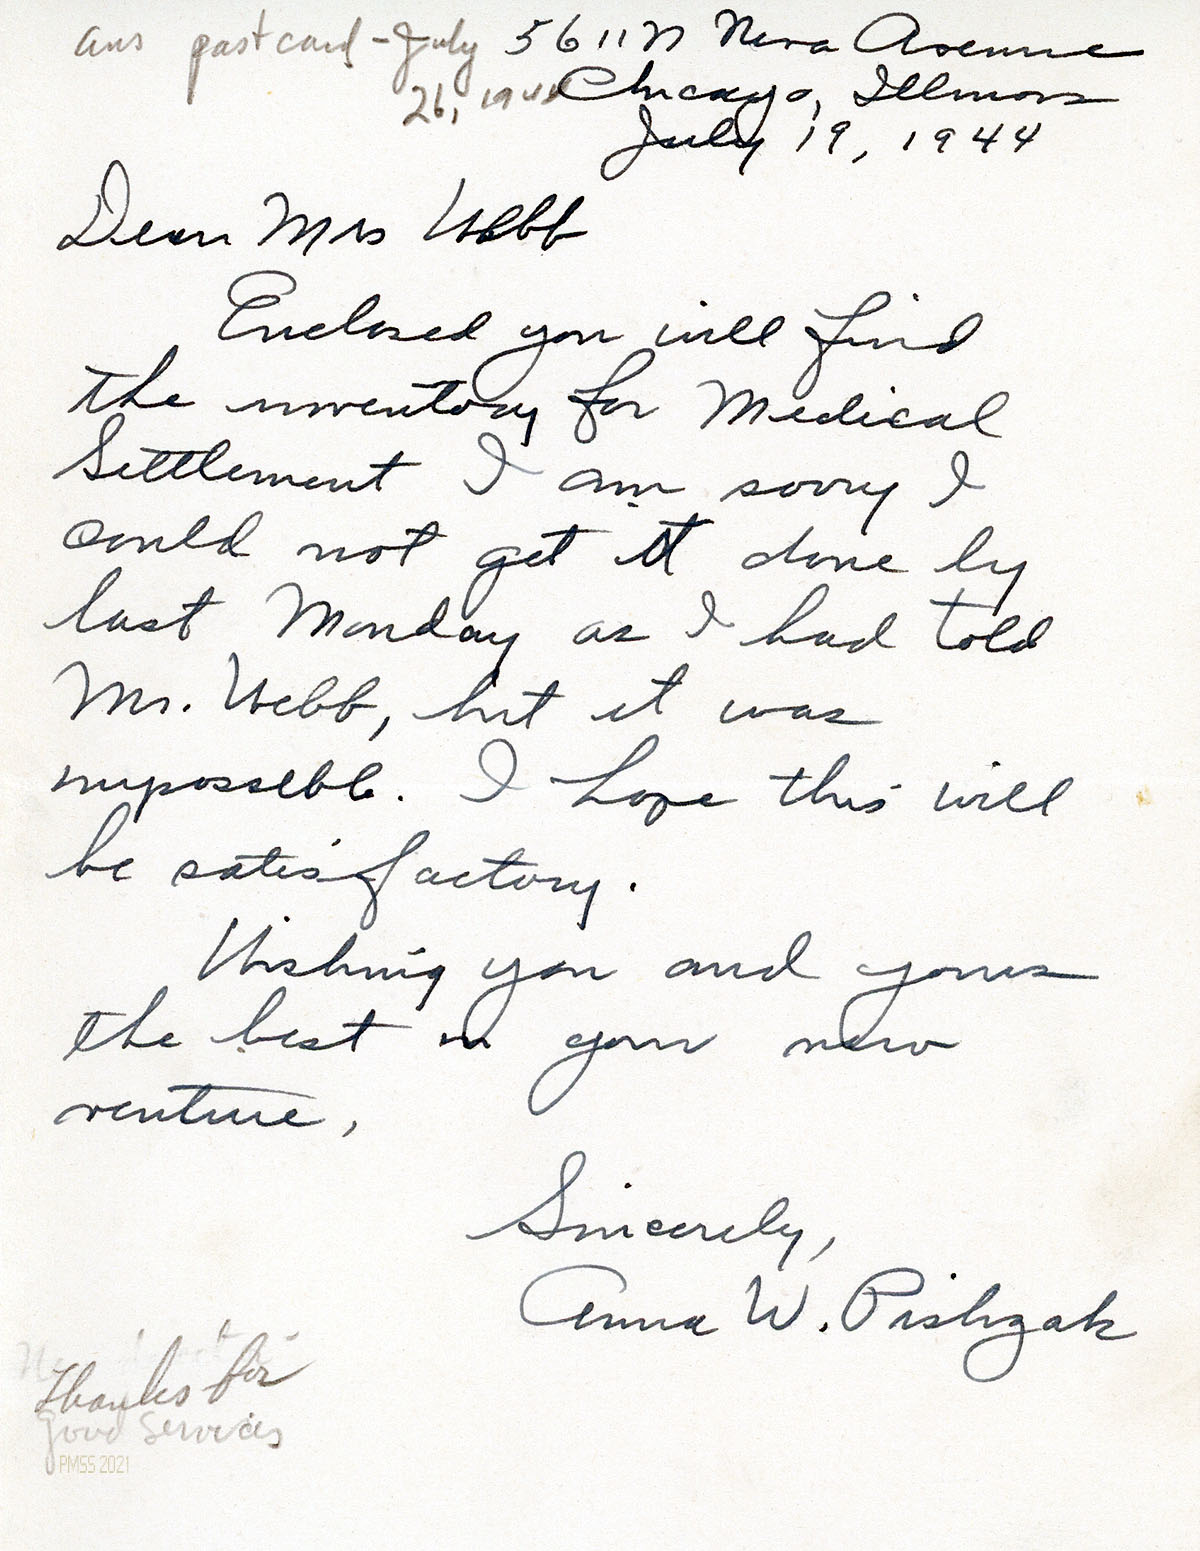 ans postcard - July
26, 1944
5611 N Neva Avenue
Chicago, Illinois
July 19, 1944
Dear Mrs Webb
Enclosed you will find
the inventory for Medical
Settlement I am sorry I
could not get it done by
last Monday as I had told
Mr. Webb, but it was
impossible. I hope this will
be satisfactory.
Wishing you and yours
the best in your new
venture,
Sincerely,
Anna W. Pishzak
Thanks for
Good Services
PMSS 2021